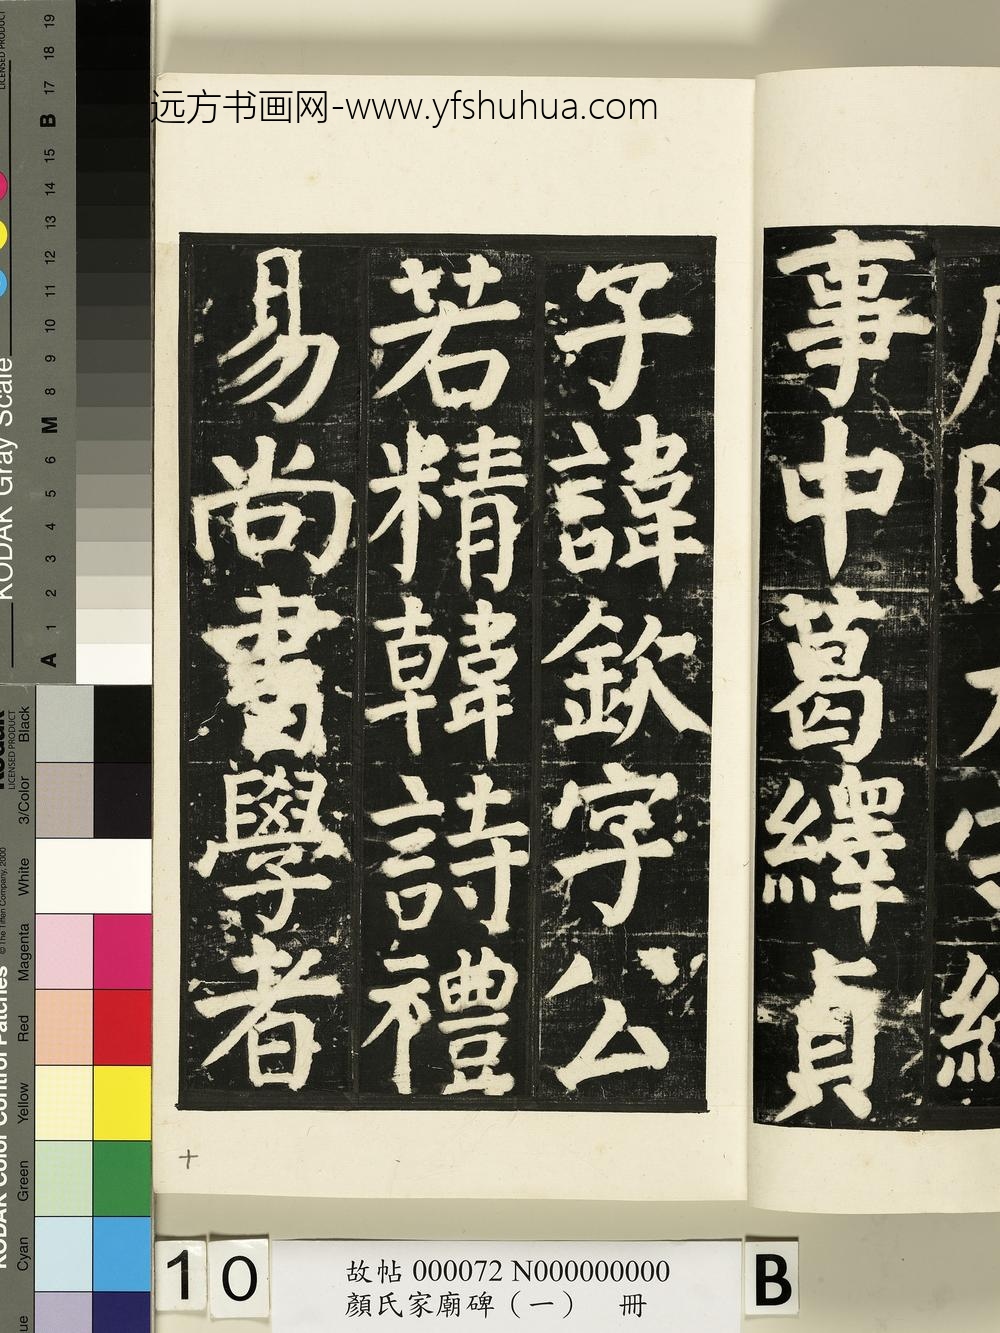 远方书画网-www.yfshuhua.com
事中葛繹貞
子諱欽字公
若精韓詩禮
易尚書學者
10
故帖 000072 N000000000
顏氏家廟碑（一） 冊
B
KODAK Gray Scale
LICENSED PRODUCT
A 1 2 3 4 5 6 M 8 9 10 11 12 13 14 15 B 17 18 19
KODAK Color Control Patches
© The Tiffen Company, 2000
Kodak
LICENSED PRODUCT
Cyan Green Yellow Red Magenta White 3/Color Black